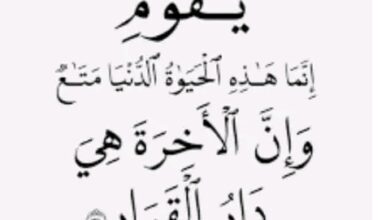 يَٰقَوْمِ
إِنَّمَا هَٰذِهِ الْحَيَوٰةُ الدُّنْيَا مَتَٰعٌ
وَإِنَّ الْأَخِرَةَ هِيَ
دَارُ الْقَرَارِ